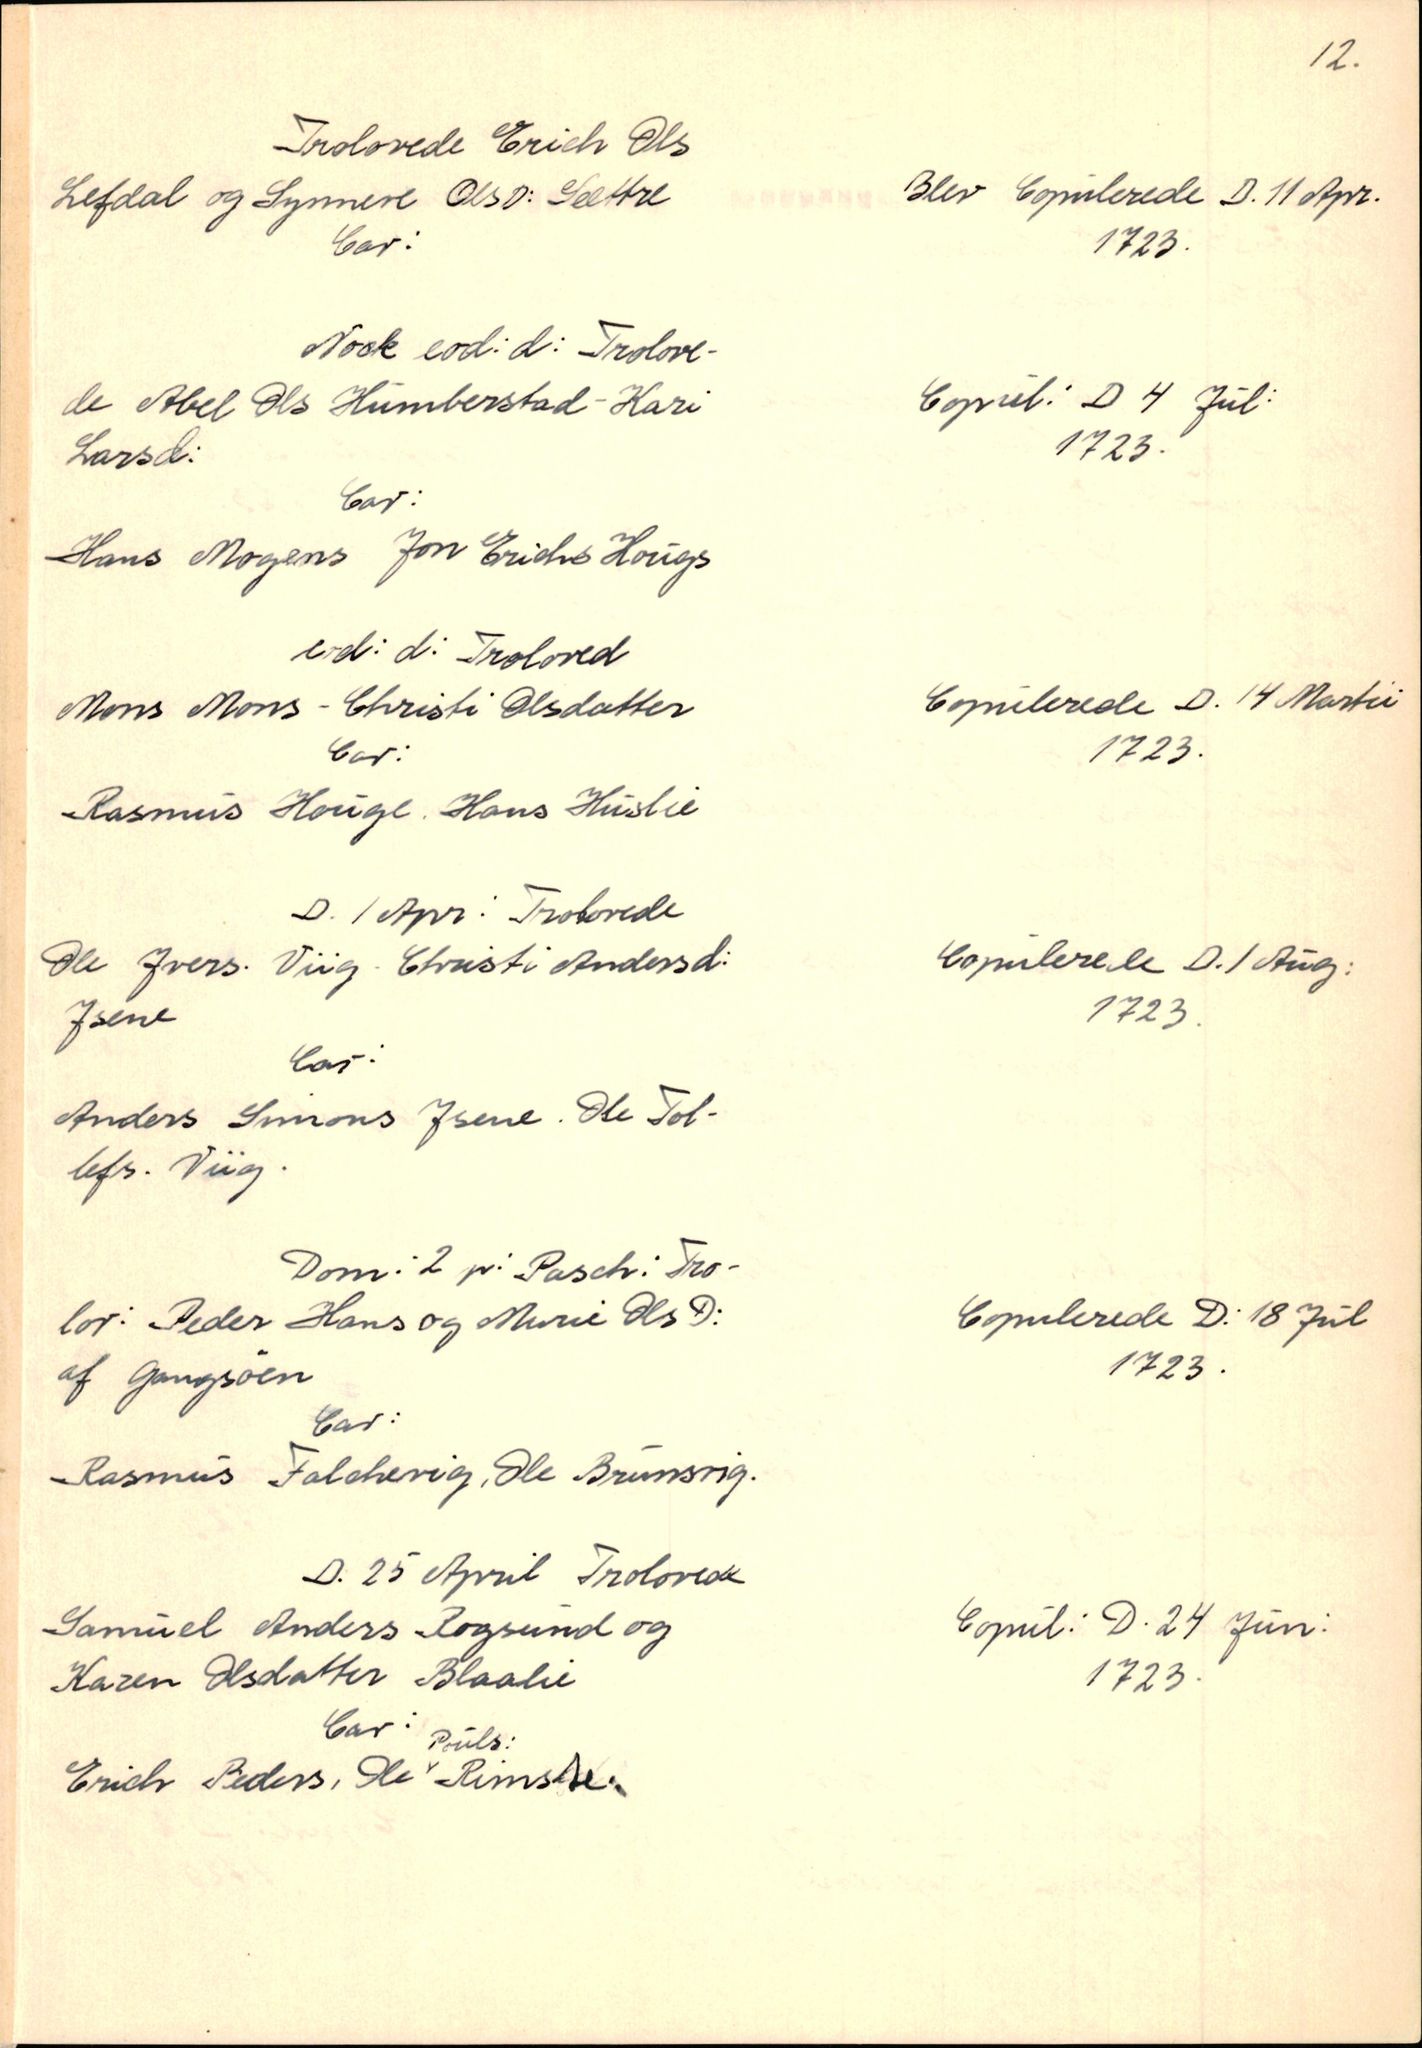 12.
Trolovede Erich Ols
Lefdal og Synneve Ols D: Sættre
Cav:
Blev Copulerede D. 11 Apr.
1723.
Nock eod: d: Trolove-
de Abel Ols Humberstad - Kari
Larsd:
Cav:
Hans Mogens Jon Erichs Hougs
Copul: D 4 Jul:
1723.
eod: d: Troloved
Mons Mons - Christi Olsdatter
Cav:
Rasmus Houge. Hans Huslie
Copulerede D. 14 Martii
1723.
D. 1 Apr: Trolovede
Ole Ivers. Viig - Christi Andersd:
Isene
Cav:
Anders Simons Isene. Ole Tol-
lefs. Viig.
Copulerede D. 1 Aug:
1723.
Dom: 2 p: Pasch: Tro-
lov: Peder Hans og Marie Ols D:
af Gangsöen
Cav:
Rasmus Falchevig, Ole Brunsvig.
Copulerede D: 18 Jul
1723.
D. 25 April Trolovede
Samuel Anders Rogsund og
Karen Olsdatter Blaalie
Cav:
Pouls:
Erich Peders, Ole Rimstæ.
Copul: D. 24 Jun:
1723.